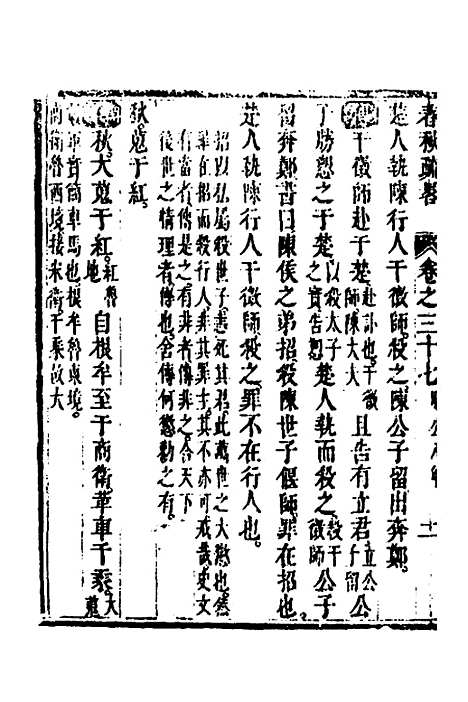 春秋疏畧 卷之三十七 十一
楚人執陳行人干徵師殺之陳公子留出奔鄭
傳干徵師赴于楚赴訃也干徵師陳大夫且告有立君立公子留公
子勝愬之于楚以殺太子之實告愬楚人執而殺之殺干徵師公子
留奔鄭書曰陳侯之弟招殺陳世子偃師罪在招也
楚人執陳行人干徵師殺之罪不在行人也
招以私屬殺世子恚死其君此萬世之大憝也然
罪在招而殺行人非其罪也其不亦可戒哉史文
有當者傳是之有非者傳非之合天下
後世之情理者傳也舍傳何懲勸之有
秋蒐于紅
傳秋大蒐于紅紅魯地自根牟至于商衛革車千乘大蒐
軍實簡車馬也根牟魯東境
商衛魯西境接宋衛千乘故大